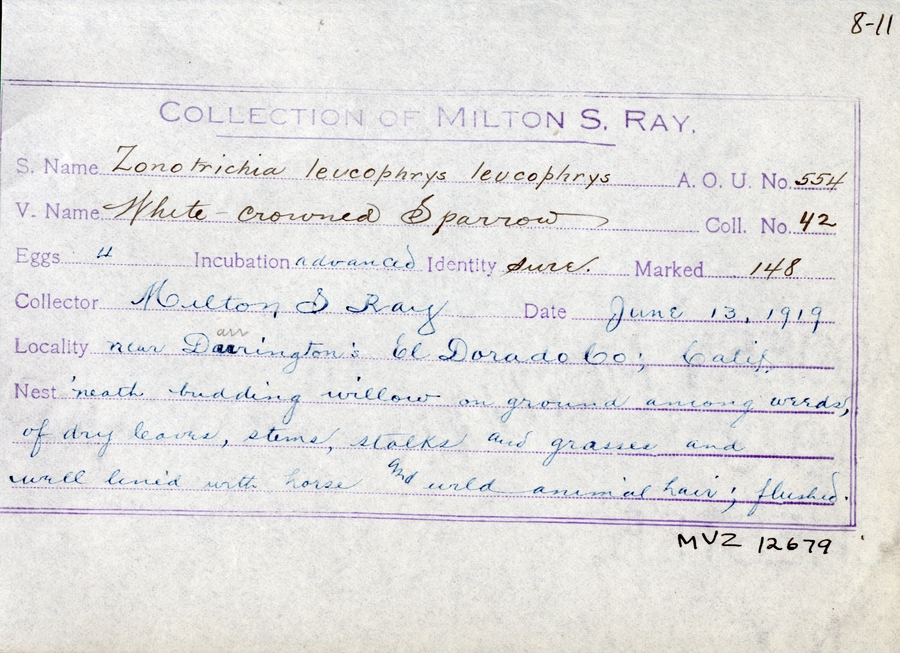 8-11
COLLECTION OF MILTON S. RAY.
S. Name Zonotrichia leucophrys leucophrys A. O. U. No. 554
V. Name White-crowned Sparrow Coll. No. 42
Eggs 4 Incubation advanced Identity sure. Marked 148
Collector Milton S Ray Date June 13, 1919
arr
Locality near Darrington's El Dorado Co; Calif.
Nest 'neath budding willow on ground among weeds,
of dry leaves, stems, stalks and grasses and
well lined with horse and wild animal hair; flushed.
MVZ 12679